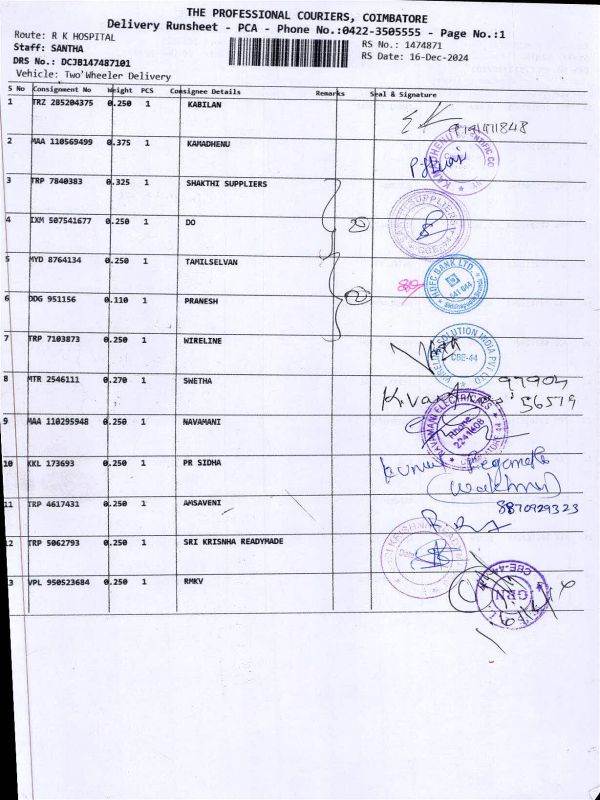 THE PROFESSIONAL COURIERS, COIMBATORE
Delivery Runsheet - PCA - Phone No.:0422-3505555 - Page No.:1
Route: R K HOSPITAL
RS No.: 1474871
Staff: SANTHA
RS Date: 16-Dec-2024
DRS No.: DCJB147487101
Vehicle: Two'Wheeler Delivery
S No Consignment No Weight PCS Consignee Details Remarks Seal & Signature
1 TRZ 285204375 0.250 1 KABILAN
2 MAA 110569499 0.375 1 KAMADHENU
3 TRP 7840383 0.325 1 SHAKTHI SUPPLIERS
SUPPLIERS
4 IXM 507541677 0.250 1 DO
5 MYD 8764134 0.250 1 TAMILSELVAN
HDFC BANK LTD.
641 044
6 DDG 951156 0.110 1 PRANESH
7 TRP 7103873 0.250 1 WIRELINE
WIRELINE SOLUTION INDIA PVT LTD
CBE-44
8 MTR 2546111 0.270 1 SWETHA
99904
56579
9 MAA 110295948 0.250 1 NAVAMANI
NAVAMANI ELECTRICALS
Phone
2241608
10 KKL 173693 0.250 1 PR SIDHA
(watchman)
11 TRP 4617431 0.250 1 AMSAVENI
8870929323
12 TRP 5062793 0.250 1 SRI KRISNHA READYMADE
13 VPL 950523684 0.250 1 RMKV
CBE-44